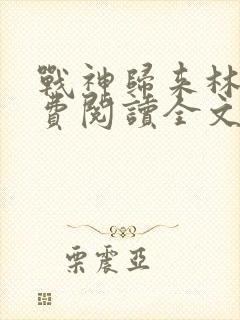 戰神歸来林
費閱讀全文
栗震亞